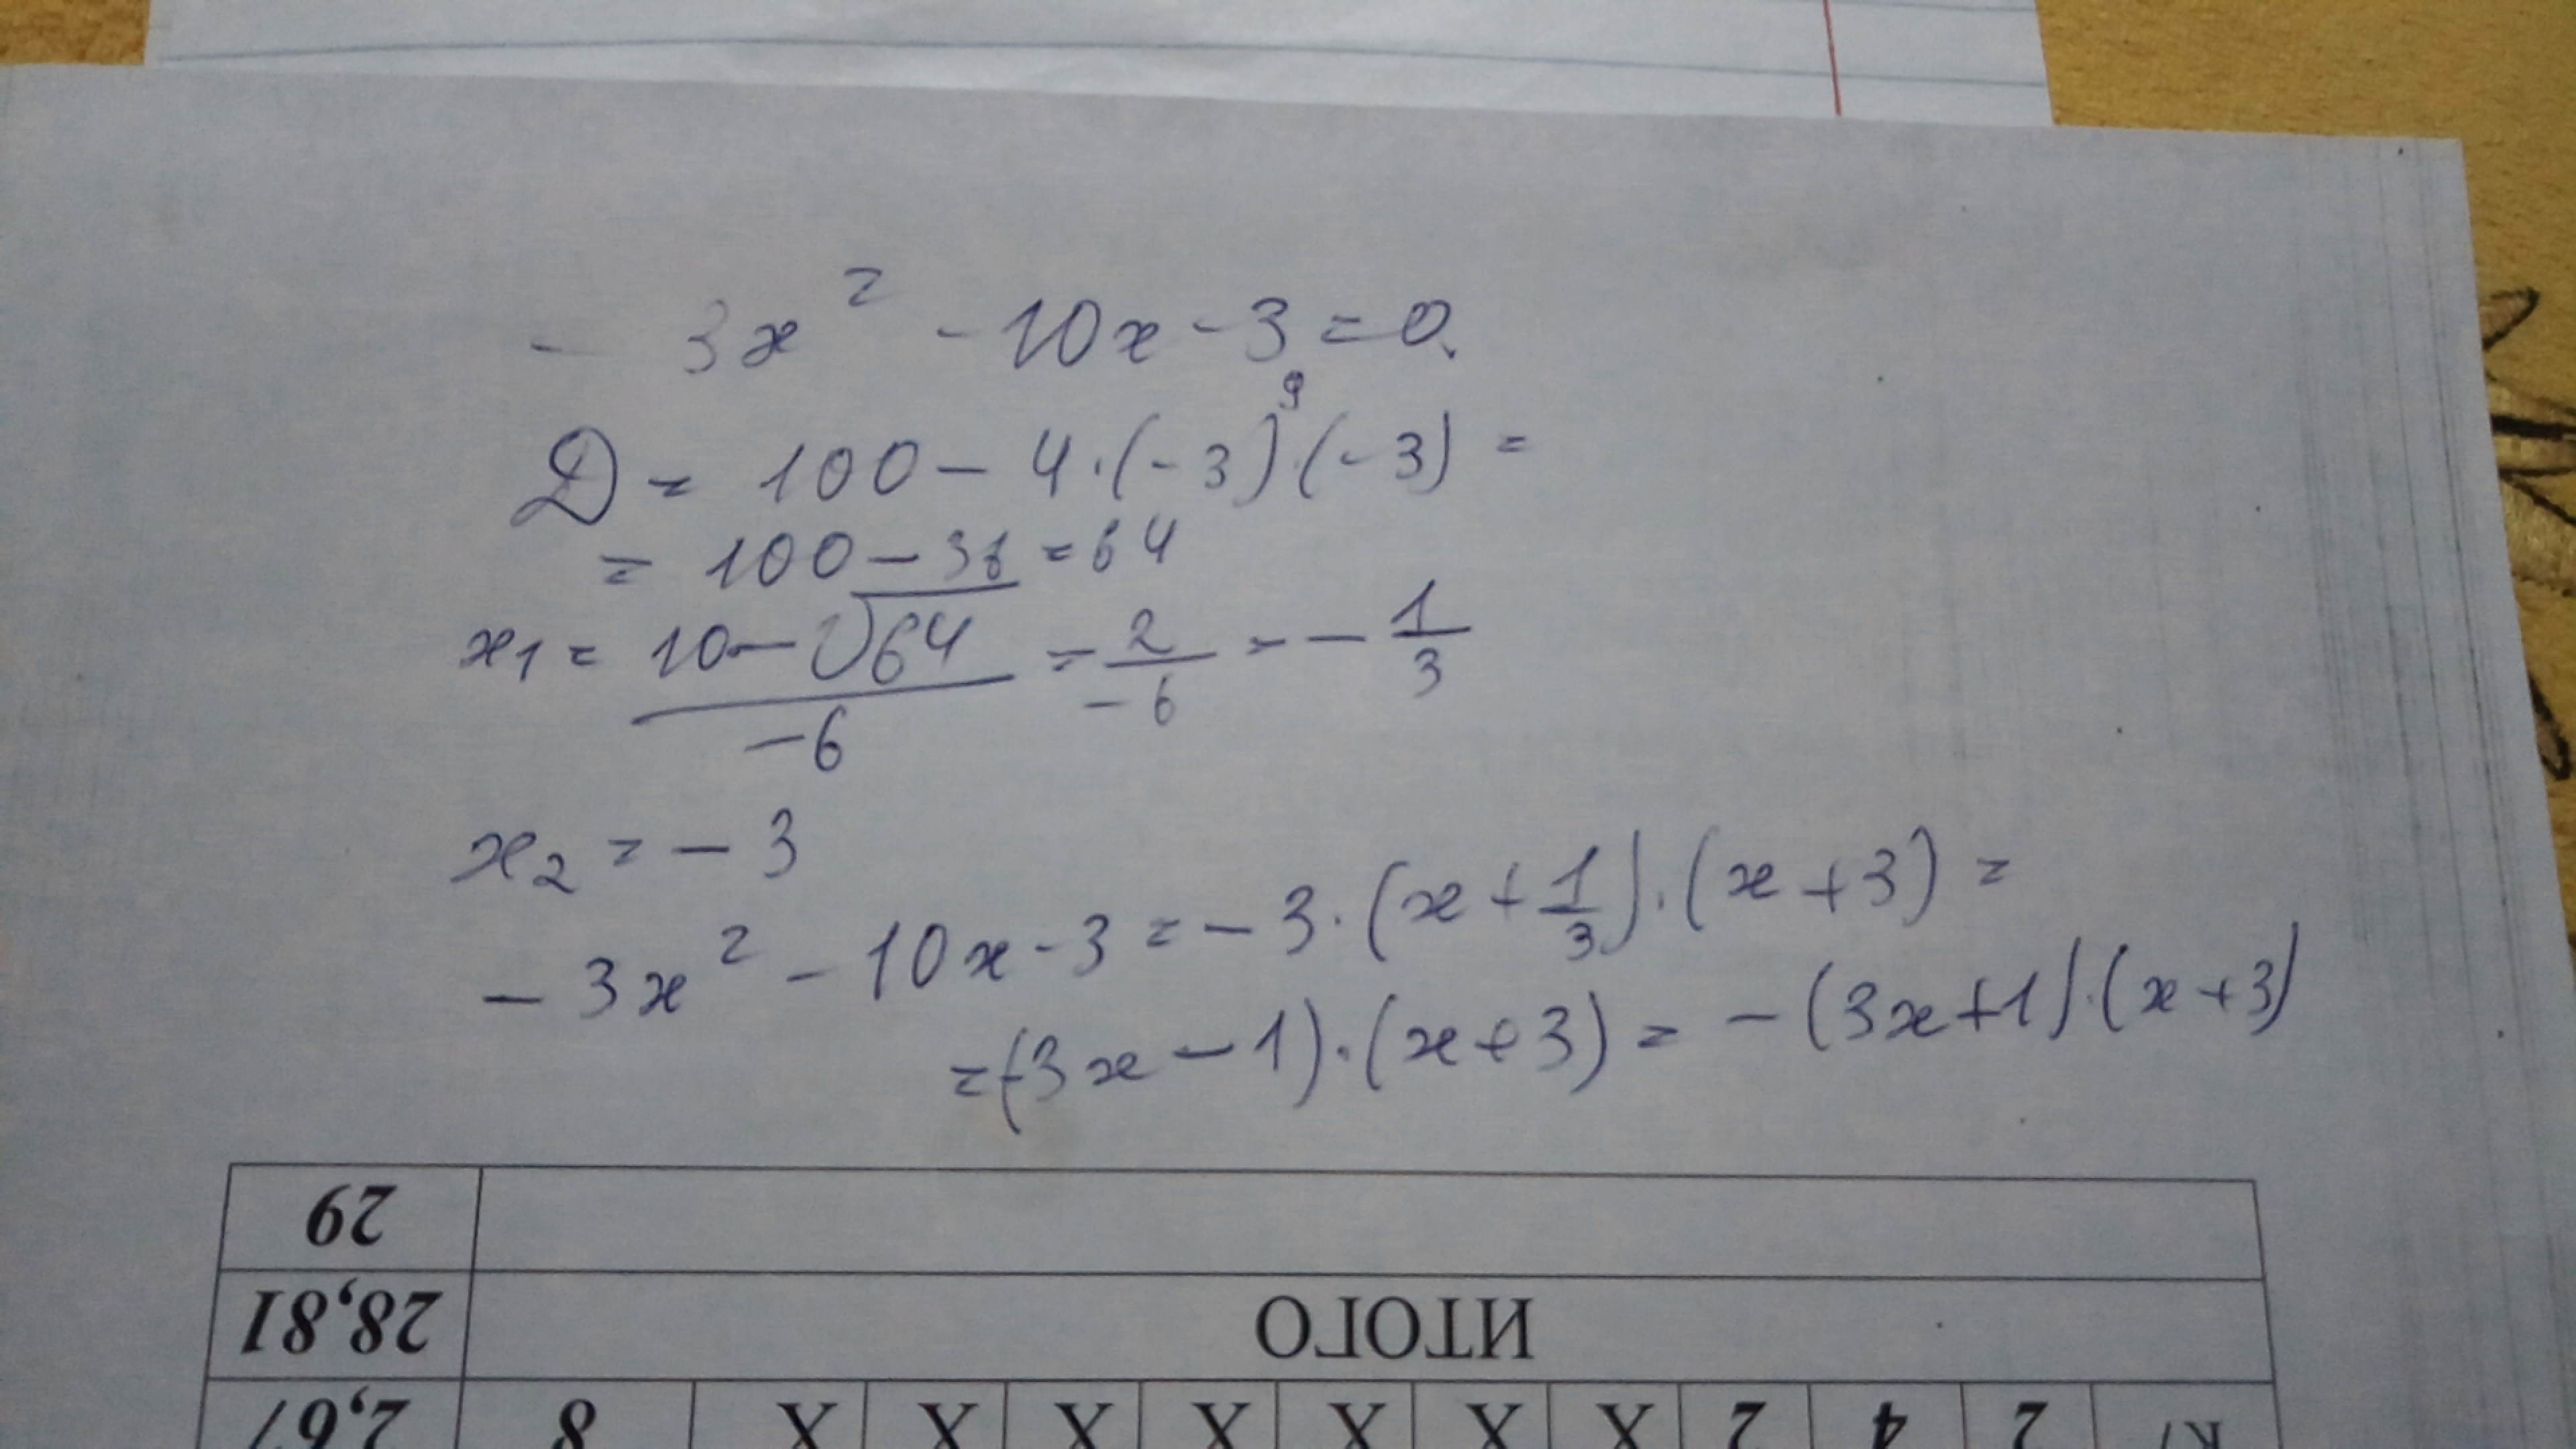 - 3x² - 10x - 3 = 0.
D = 100 - 4·(-3)⁹·(-3) =
= 100 - 36 = 64
x₁ = (10 - √64)/(-6) = 2/(-6) = - 1/3
x₂ = - 3
- 3x² - 10x - 3 = - 3·(x + 1/3)·(x + 3) =
= (-3x - 1)·(x + 3) = - (3x + 1)·(x + 3)
29
28,81 ИТОГО
2,67 8 X X X X X X X 2 4 2